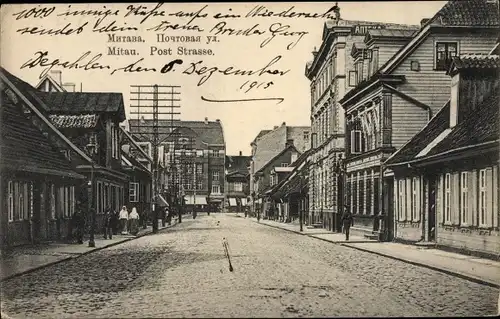 1000 innige Küße aufs ein Wiederseh
sendet dem dein treuer Bruder
Митава. Почтовая ул.
Mitau. Post Strasse.
den 5 Dezember
1915